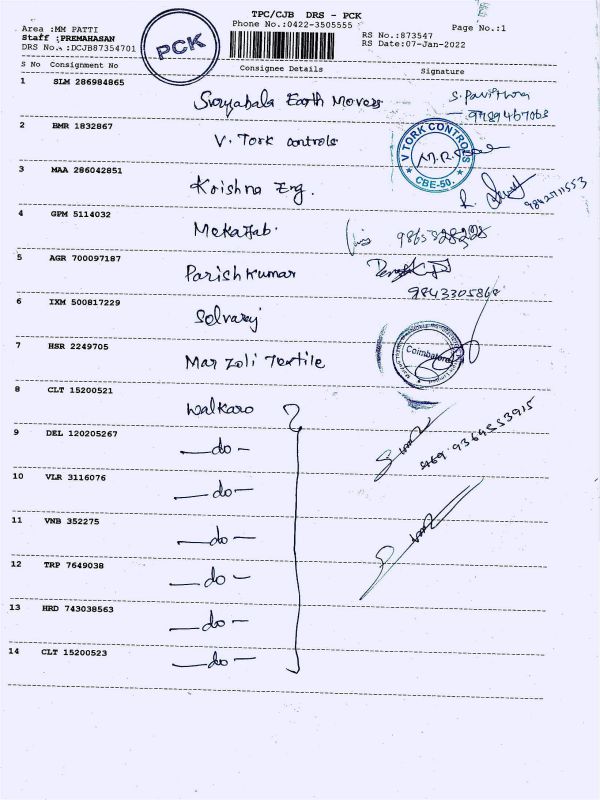 TPC/CJB DRS - PCK
Phone No.:0422-3505555
Area :MM PATTI
Staff :PREMAHASAN
DRS No.:DCJB87354701
PCK
RS No.:873547
RS Date:07-Jan-2022
Page No.:1
S No Consignment No Consignee Details Signature
1 SLM 286984865 Suryabala Earth Movers S. Pavithra
9789467068
2 BMR 1832867 V. Tork controls
V TORK CONTROLS
CBE-50.
3 MAA 286042851 Krishna Eng.
9842711553
4 GPM 5114032 Mekafab.
5 AGR 700097187 Parishkumar
9843305868
6 IXM 500817229 Selvaraj
7 HSR 2249705 Mar Zoli Textile
Coimbatore
8 CLT 15200521 Walkaro
9 DEL 120205267 —do—
469. 9364553915
10 VLR 3116076 —do—
11 VNB 352275 —do—
12 TRP 7649038 —do—
13 HRD 743038563 —do—
14 CLT 15200523 —do—